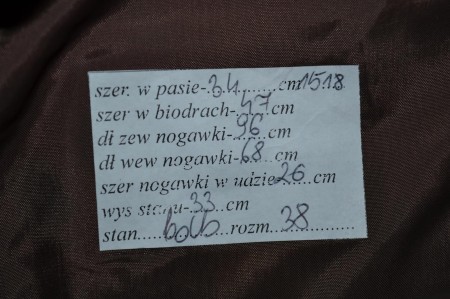 szer. w pasie-.34..........cm1518
szer w biodrach-.47cm
dł zew nogawki-.96...cm
dł wew nogawki-.68...cm
szer nogawki w udzie26.....cm
wys stanu-.33...cm
stan.......bdb....rozm...38.............